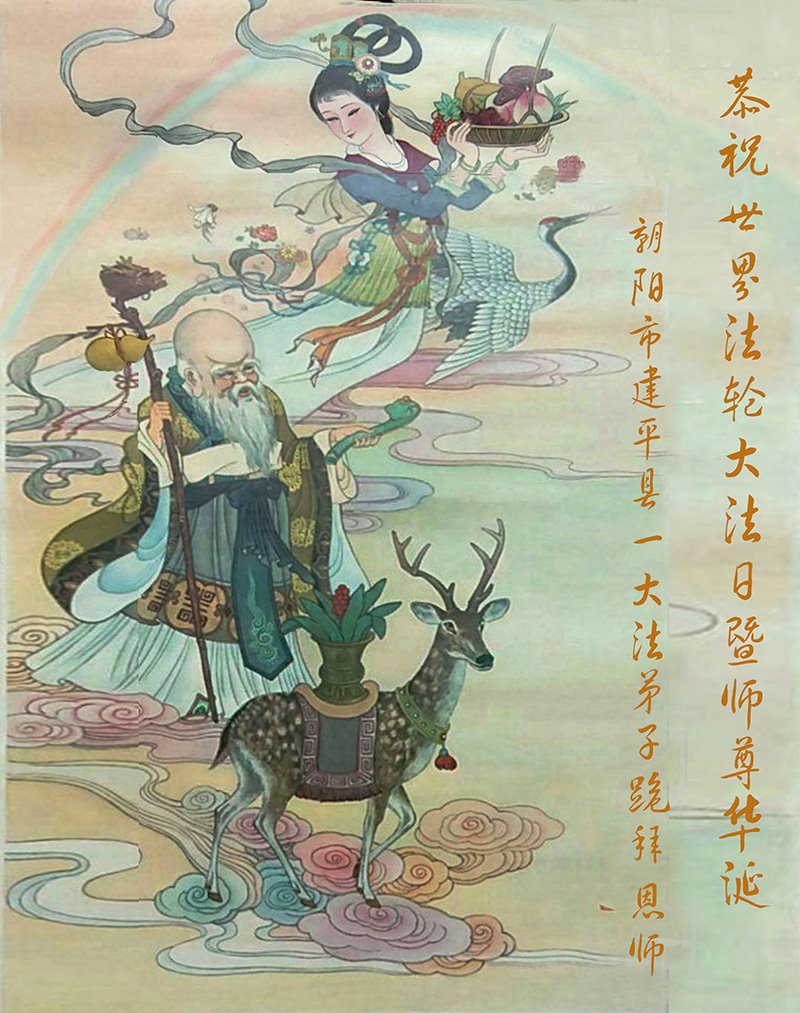 恭祝世界法轮大法日暨师尊华诞
朝阳市建平县一大法弟子跪拜 恩师